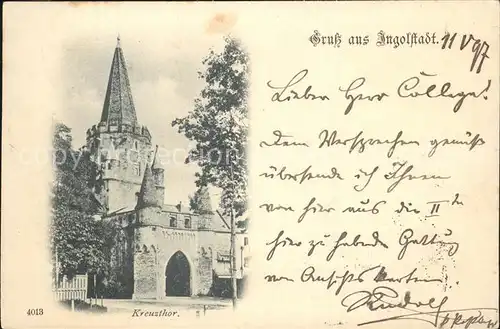 Gruß aus Ingolstadt.
11 V 97
Lieber Herr College!
Dem Versprechen gemäß
übersende ich Ihnen
von hier aus die II te
hier zu habende Gattung
von Ansichts Karten.
Rudolf
4013
Kreuzthor.